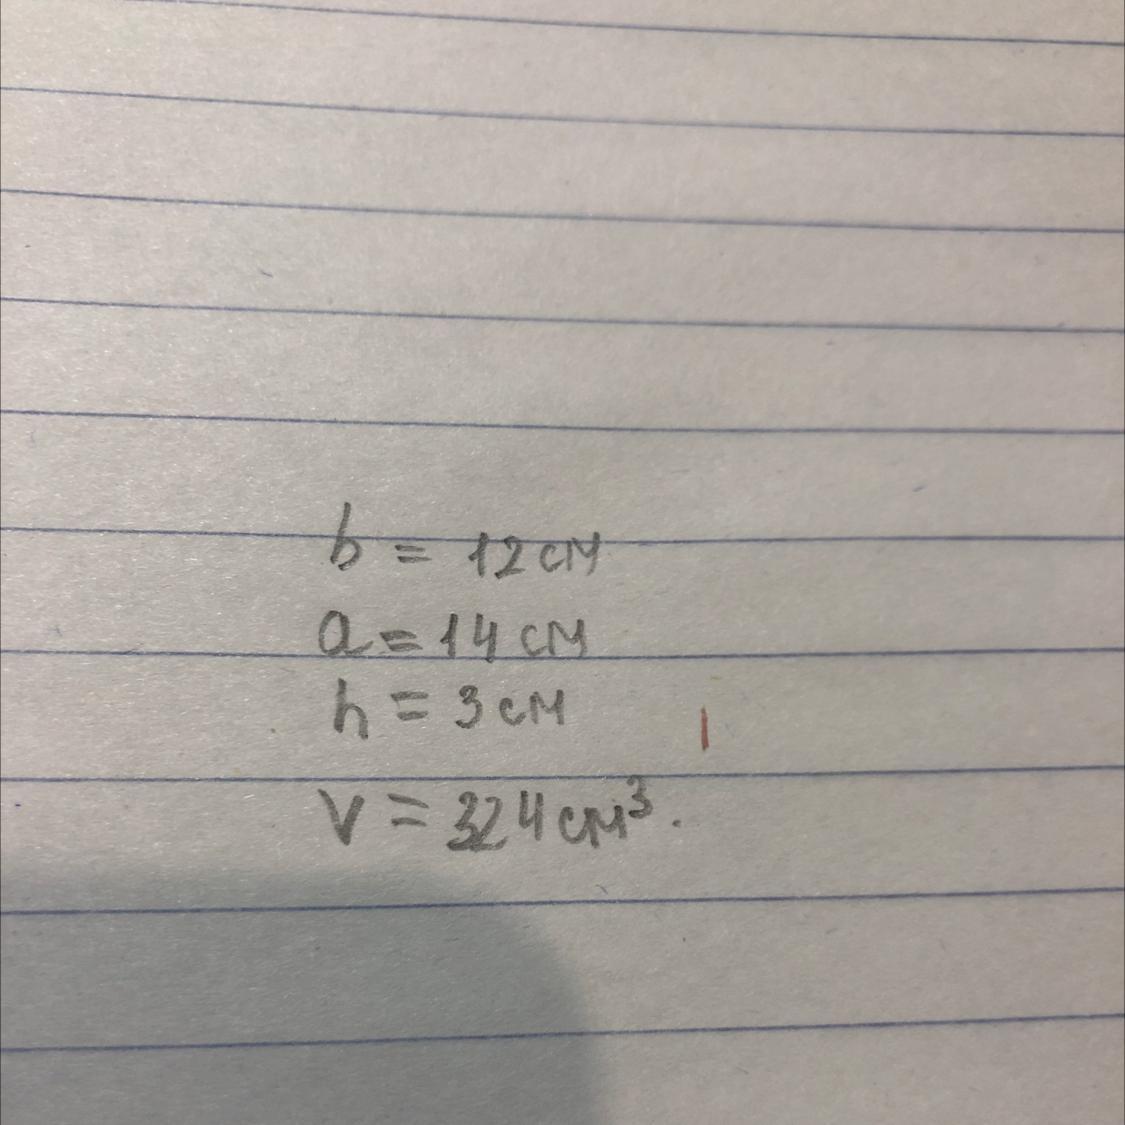 b = 12 см
a = 14 см
h = 3 см
V = 324 см³.